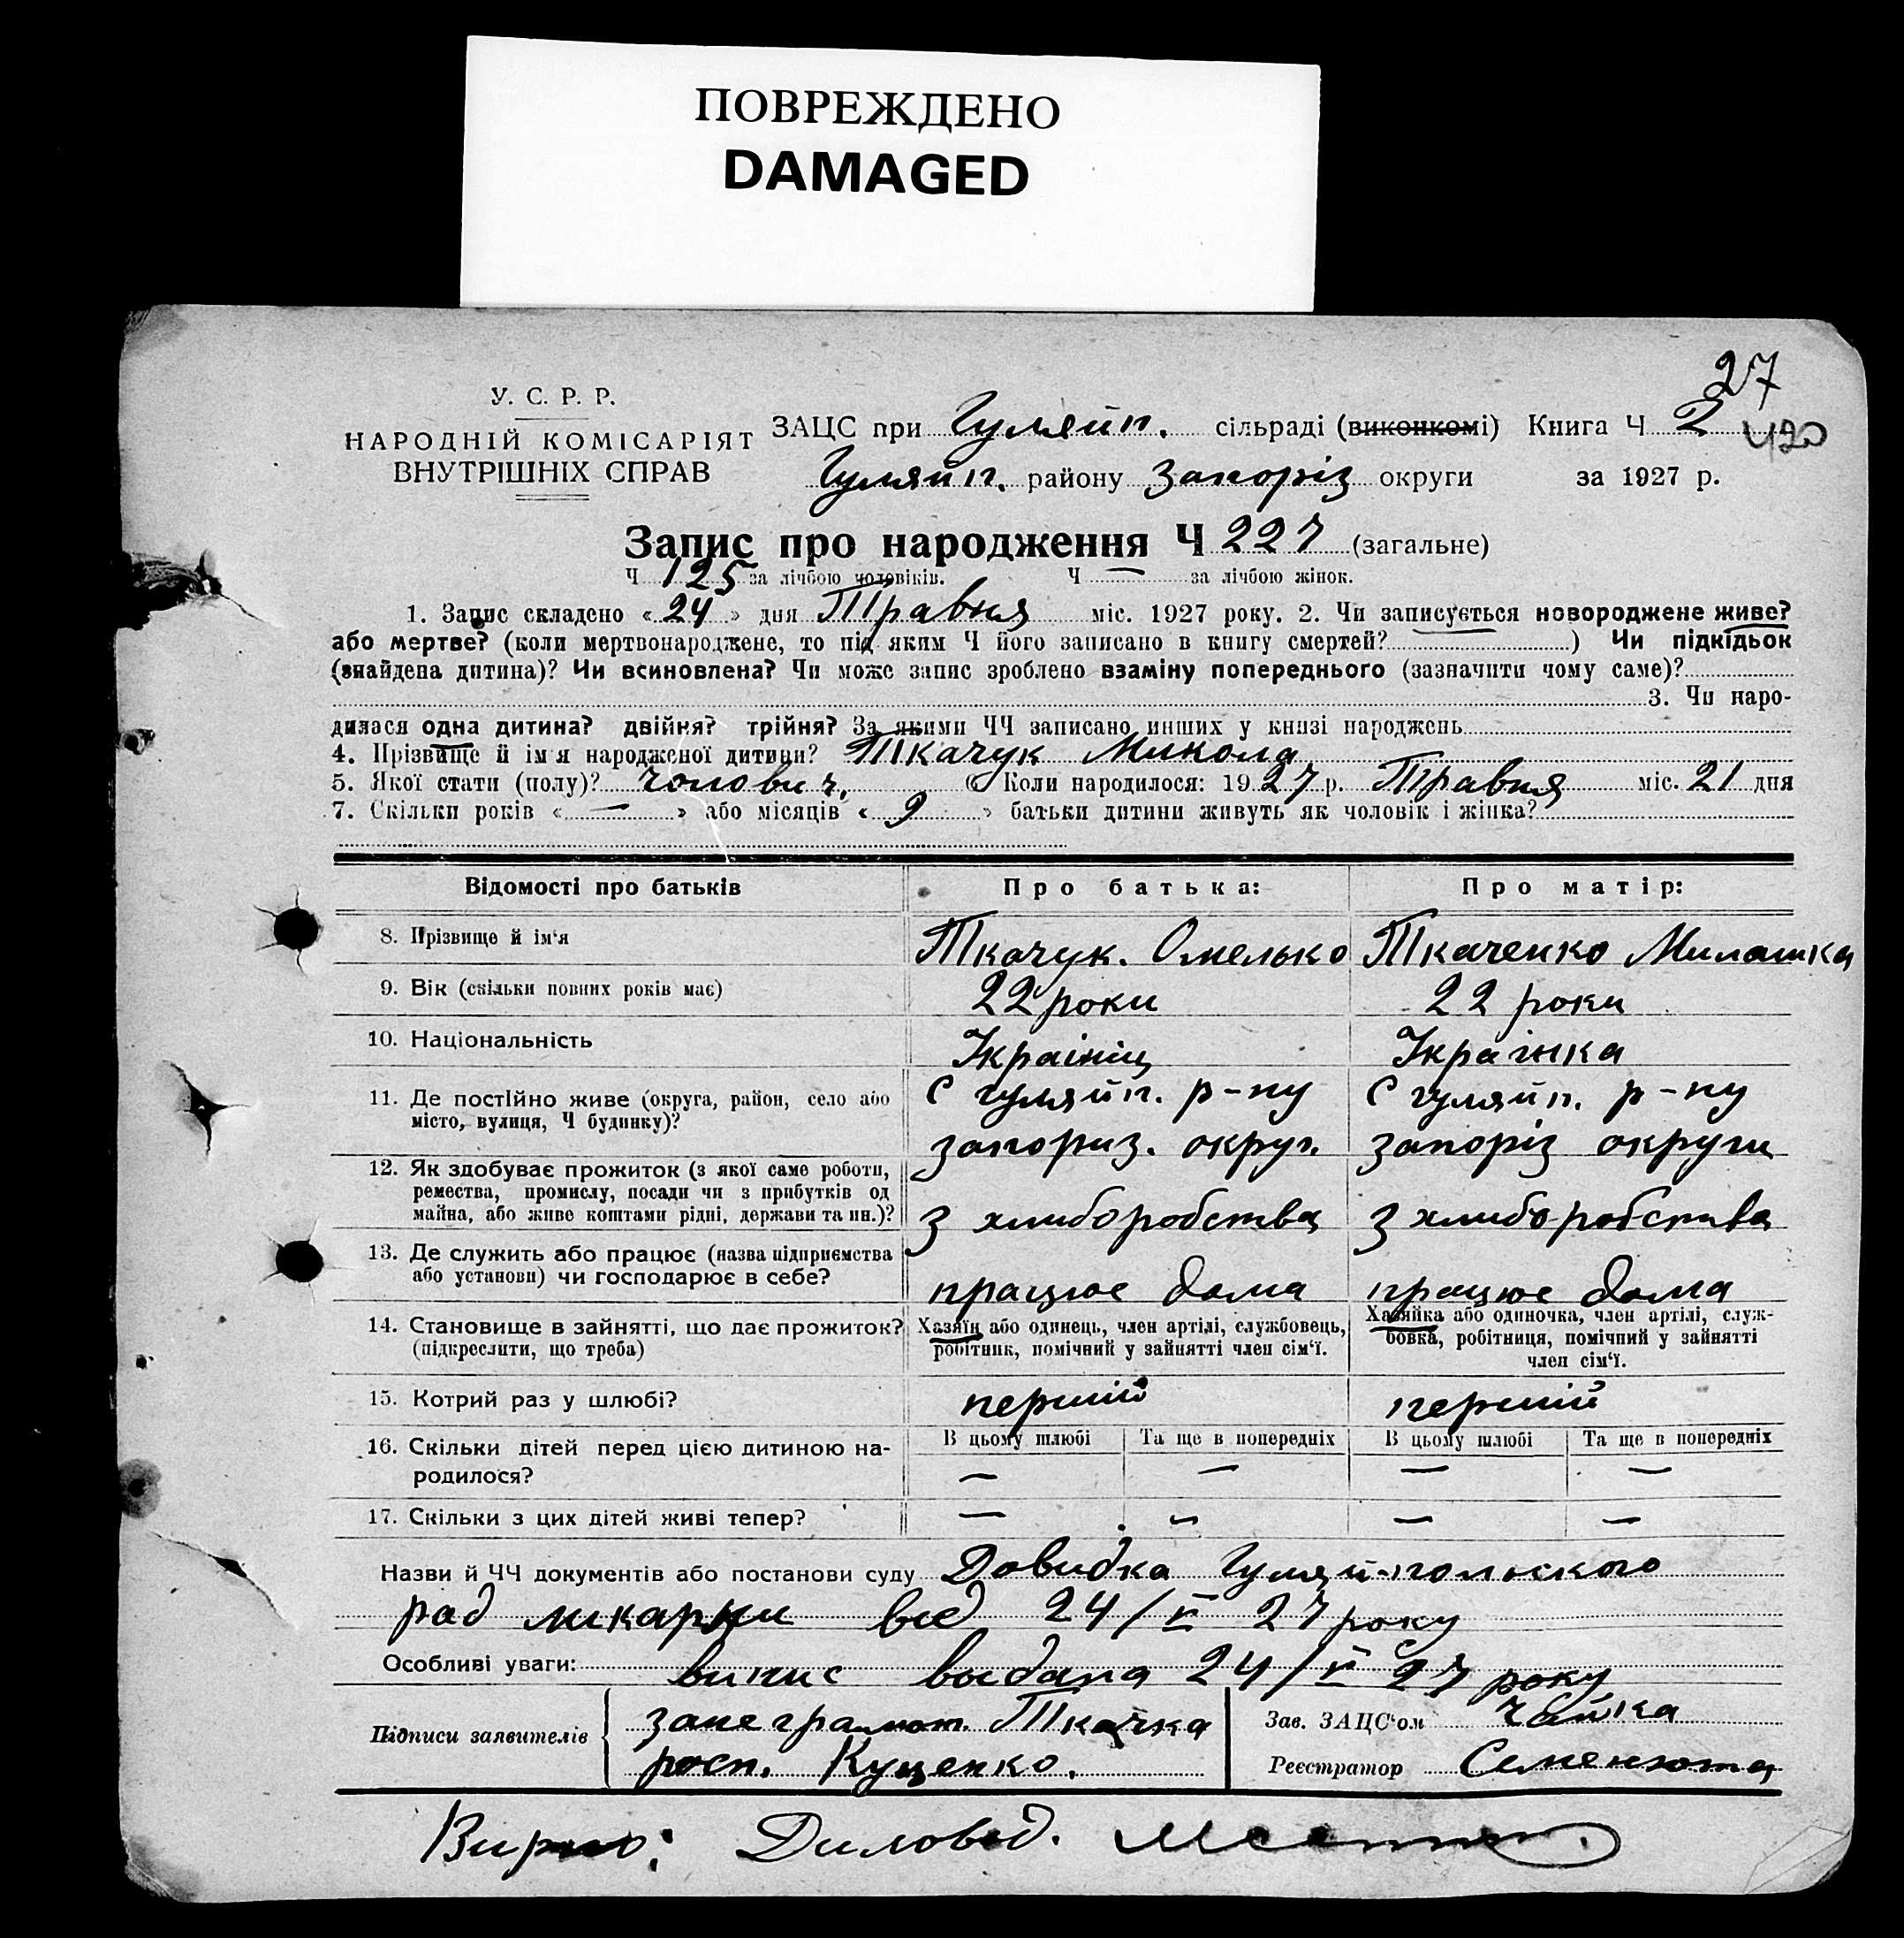 ПОВРЕЖДЕНО
DAMAGED
27
У. С. Р. Р.
НАРОДНІЙ КОМІСАРІЯТ
ВНУТРІШНІХ СПРАВ
ЗАЦС при Гуляйп. сільраді (виконкомі) Книга Ч 2
420
Гуляйп. району Запоріз округи за 1927 р.
Запис про народження Ч 227 (загальне)
Ч 125 за лічбою чоловіків. Ч — за лічбою жінок.
1. Запис складено «24» дня Травня міс. 1927 року. 2. Чи записується новороджене живе?
або мертве? (коли мертвонароджене, то під яким Ч його записано в книгу смертей?) Чи підкідьок
(знайдена дитина)? Чи всиновлена? Чи може запис зроблено взаміну попереднього (зазначити чому саме)?
3. Чи наро-
дилася одна дитина? двійня? трійня? За якими ЧЧ записано инших у книзі народжень
4. Прізвище й ім'я народженої дитини? Ткачук Микола
5. Якої стати (полу)? чолович. 6 Коли народилося: 1927 р. Травня міс. 21 дня
7. Скільки років «—» або місяців «9» батьки дитини живуть як чоловік і жінка?
Відомості про батьків Про батька: Про матір:
8. Прізвище й ім'я Ткачук. Омелько Ткаченко Милашка
9. Вік (скільки повних років має) 22 роки 22 роки
10. Національність Украініц Украінка
11. Де постійно живе (округа, район, село або С Гуляйп. р-ну С Гуляйп. р-ну
місто, вулиця, Ч будинку)? запориз. округ. запоріз округи
12. Як здобуває прожиток (з якої саме роботи,
ремества, промислу, посади чи з прибутків од
майна, або живе коштами рідні, держави та ин.)? з хлиборобства з хлиборобства
13. Де служить або працює (назва підприємства
або установи) чи господарює в себе? працює дома працює дома
14. Становище в зайнятті, що дає прожиток? Хазяїн або одинець, член артілі, службовець, Хазяйка або одиночка, член артілі, служ-
(підкреслити, що треба) робітник, помічний у зайнятті член сім'ї. бовка, робітниця, помічний у зайнятті
член сім'ї.
15. Котрий раз у шлюбі? перший перший
16. Скільки дітей перед цією дитиною на- В цьому шлюбі Та ще в попередніх В цьому шлюбі Та ще в попередніх
родилося? — — — —
17. Скільки з цих дітей живі тепер? — — — —
Назви й ЧЧ документів або постанови суду Довидка Гуляй-польского
рад ликарни вид 24/V 27 року
Особливі уваги: випис выдана 24/V 27 року
Підписи заявителів занеграмот. Ткачка Зав. ЗАЦС'ом Чайка
росп. Куценко. Реєстратор Семенюта
Вирно: Диловод.